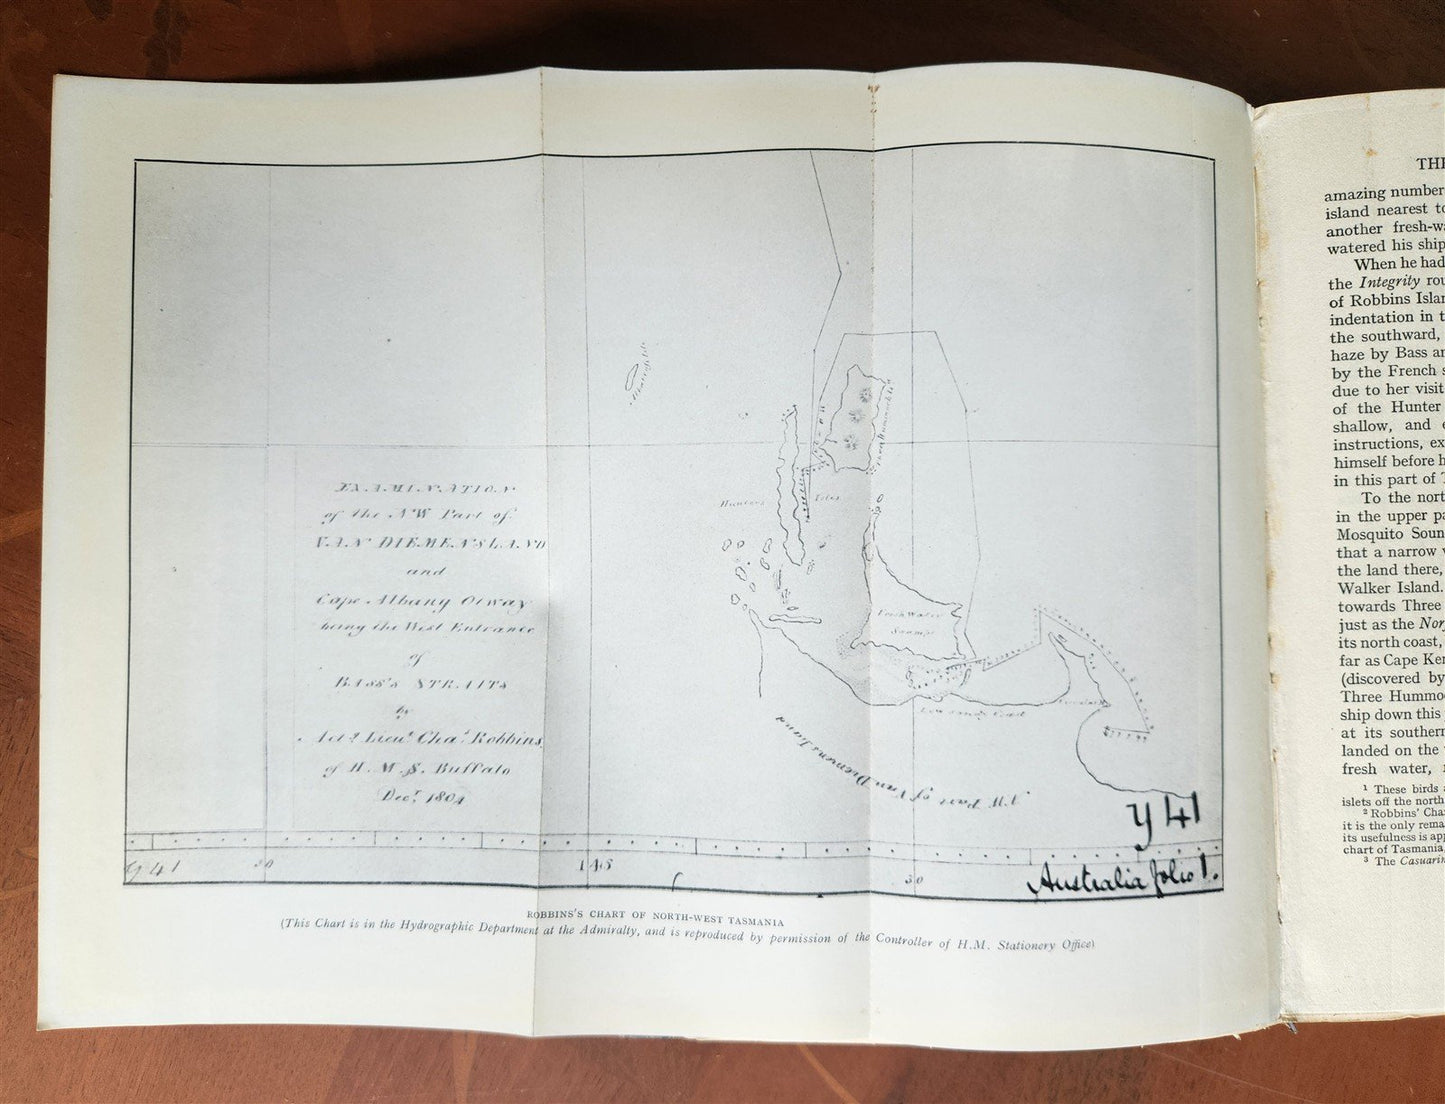 EXAMINATION
of the NW Part of
VAN DIEMENSLAND
and
Cape Albany Otway
being the West Entrance
of
BASS'S STRAITS
by
Actg Lieut Chas Robbins
of H.M.S. Buffalo
Decr 1804
Hunters
Isles
Three Hummock Id
Fresh Water
Swamp
Low sandy Coast
N.W. Part of Van Diemens Land
y 41
20
145
30
Y 41
Australia folio 1.
ROBBINS'S CHART OF NORTH-WEST TASMANIA
(This Chart is in the Hydrographic Department at the Admiralty, and is reproduced by permission of the Controller of H.M. Stationery Office)
THE
amazing number
island nearest to
another fresh-wa
watered his ship
When he had
the Integrity rou
of Robbins Islan
indentation in t
the southward,
haze by Bass an
by the French s
due to her visit
of the Hunter
shallow, and e
instructions, ex
himself before h
in this part of T
To the nort
in the upper pa
Mosquito Soun
that a narrow v
the land there,
Walker Island.
towards Three
just as the Nor
its north coast,
far as Cape Ker
(discovered by
Three Hummo
ship down this
at its southern
landed on the
fresh water,
1 These birds a
islets off the north
2 Robbins' Cha
it is the only rema
its usefulness is app
chart of Tasmania,
3 The Casuarin